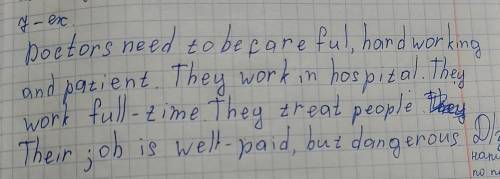 7-ex.
Doctors need to be careful, handworking
and patient. They work in hospital. They
work full-time. They treat people.
Their job is well-paid, but dangerous D/з
напи
по п